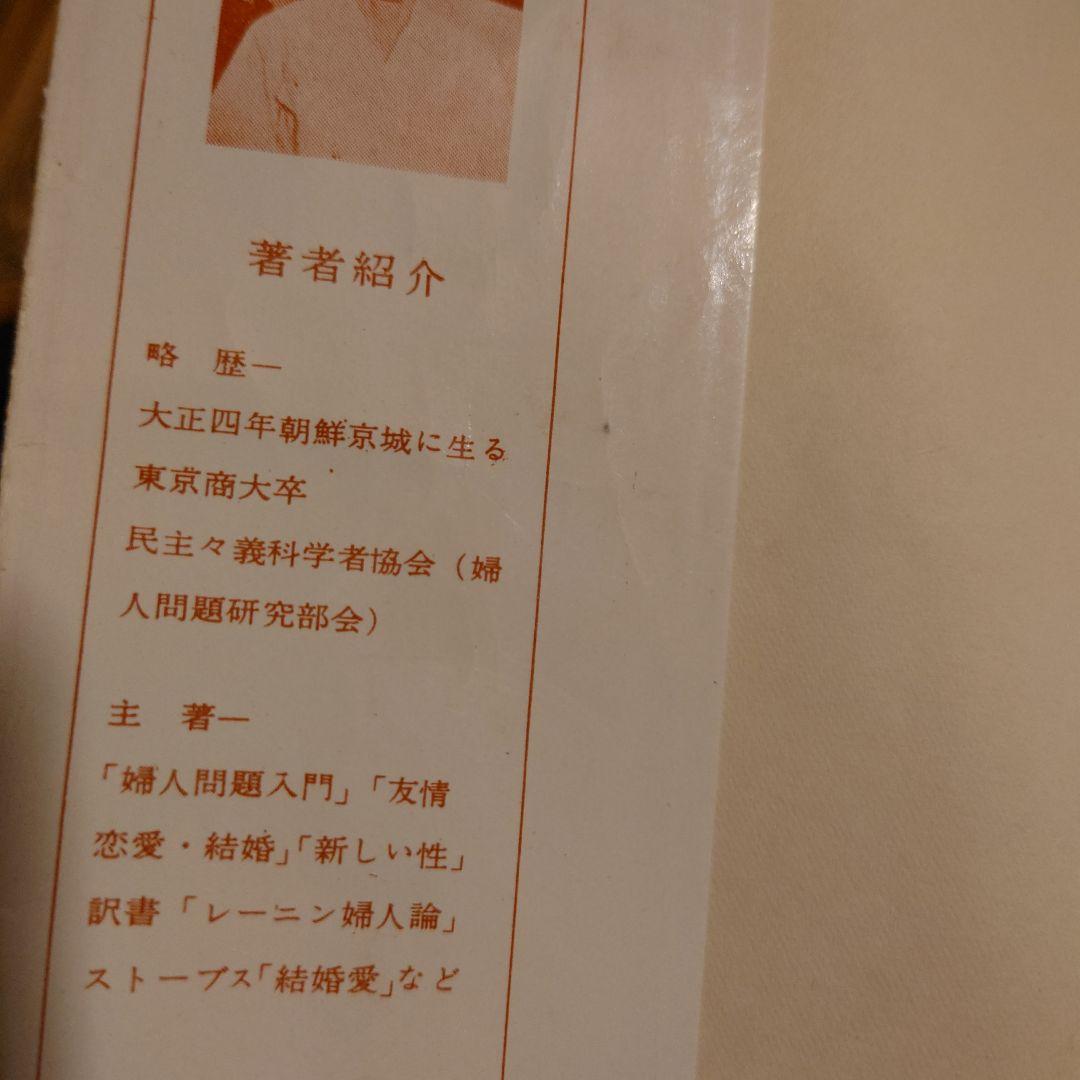 著者紹介
略 歴―
大正四年朝鮮京城に生る
東京商大卒
民主々義科学者協会(婦
人問題研究部会)
主 著―
「婦人問題入門」「友情
恋愛・結婚」「新しい性」
訳書「レーニン婦人論」
ストープス「結婚愛」など